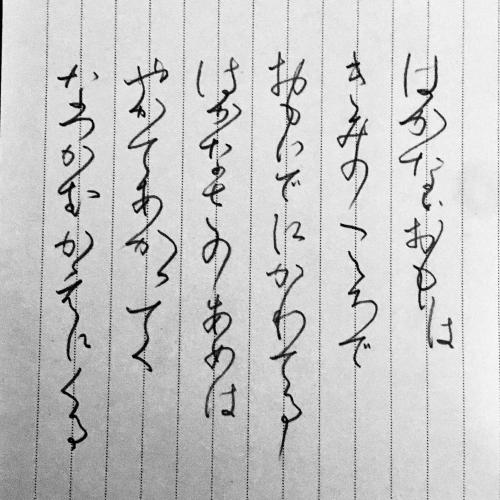 はかなおもは
きみのこころで
おもいでにかわてる
はかなのあめは
やがてあがってく
なつがむかえにくる